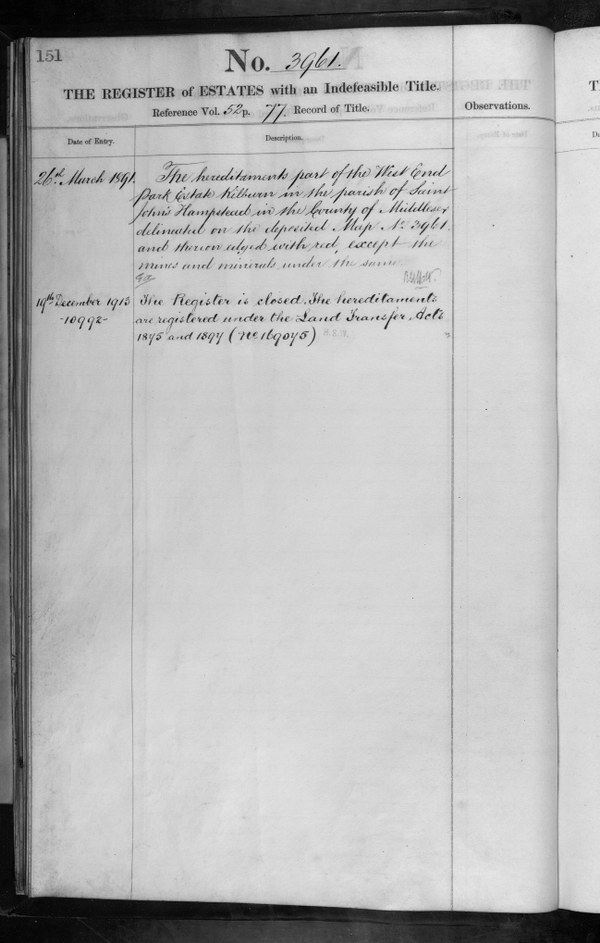 151
No. 3961.
THE REGISTER of ESTATES with an Indefeasible Title.
Reference Vol. 52 p. 77. Record of Title.
Observations.
Date of Entry.
Description.
26th March 1891.
The hereditaments part of the West End
Park Estate Kilburn in the parish of Saint
John's Hampstead in the County of Middlesex
delineated on the deposited Map No. 3961.
and thereon edged with red, except the
mines and minerals under the same.
19th December 1913
-10992-
The Register is closed. The hereditaments
are registered under the Land Transfer Acts
1875 and 1897 (No. 169075)
T
Da